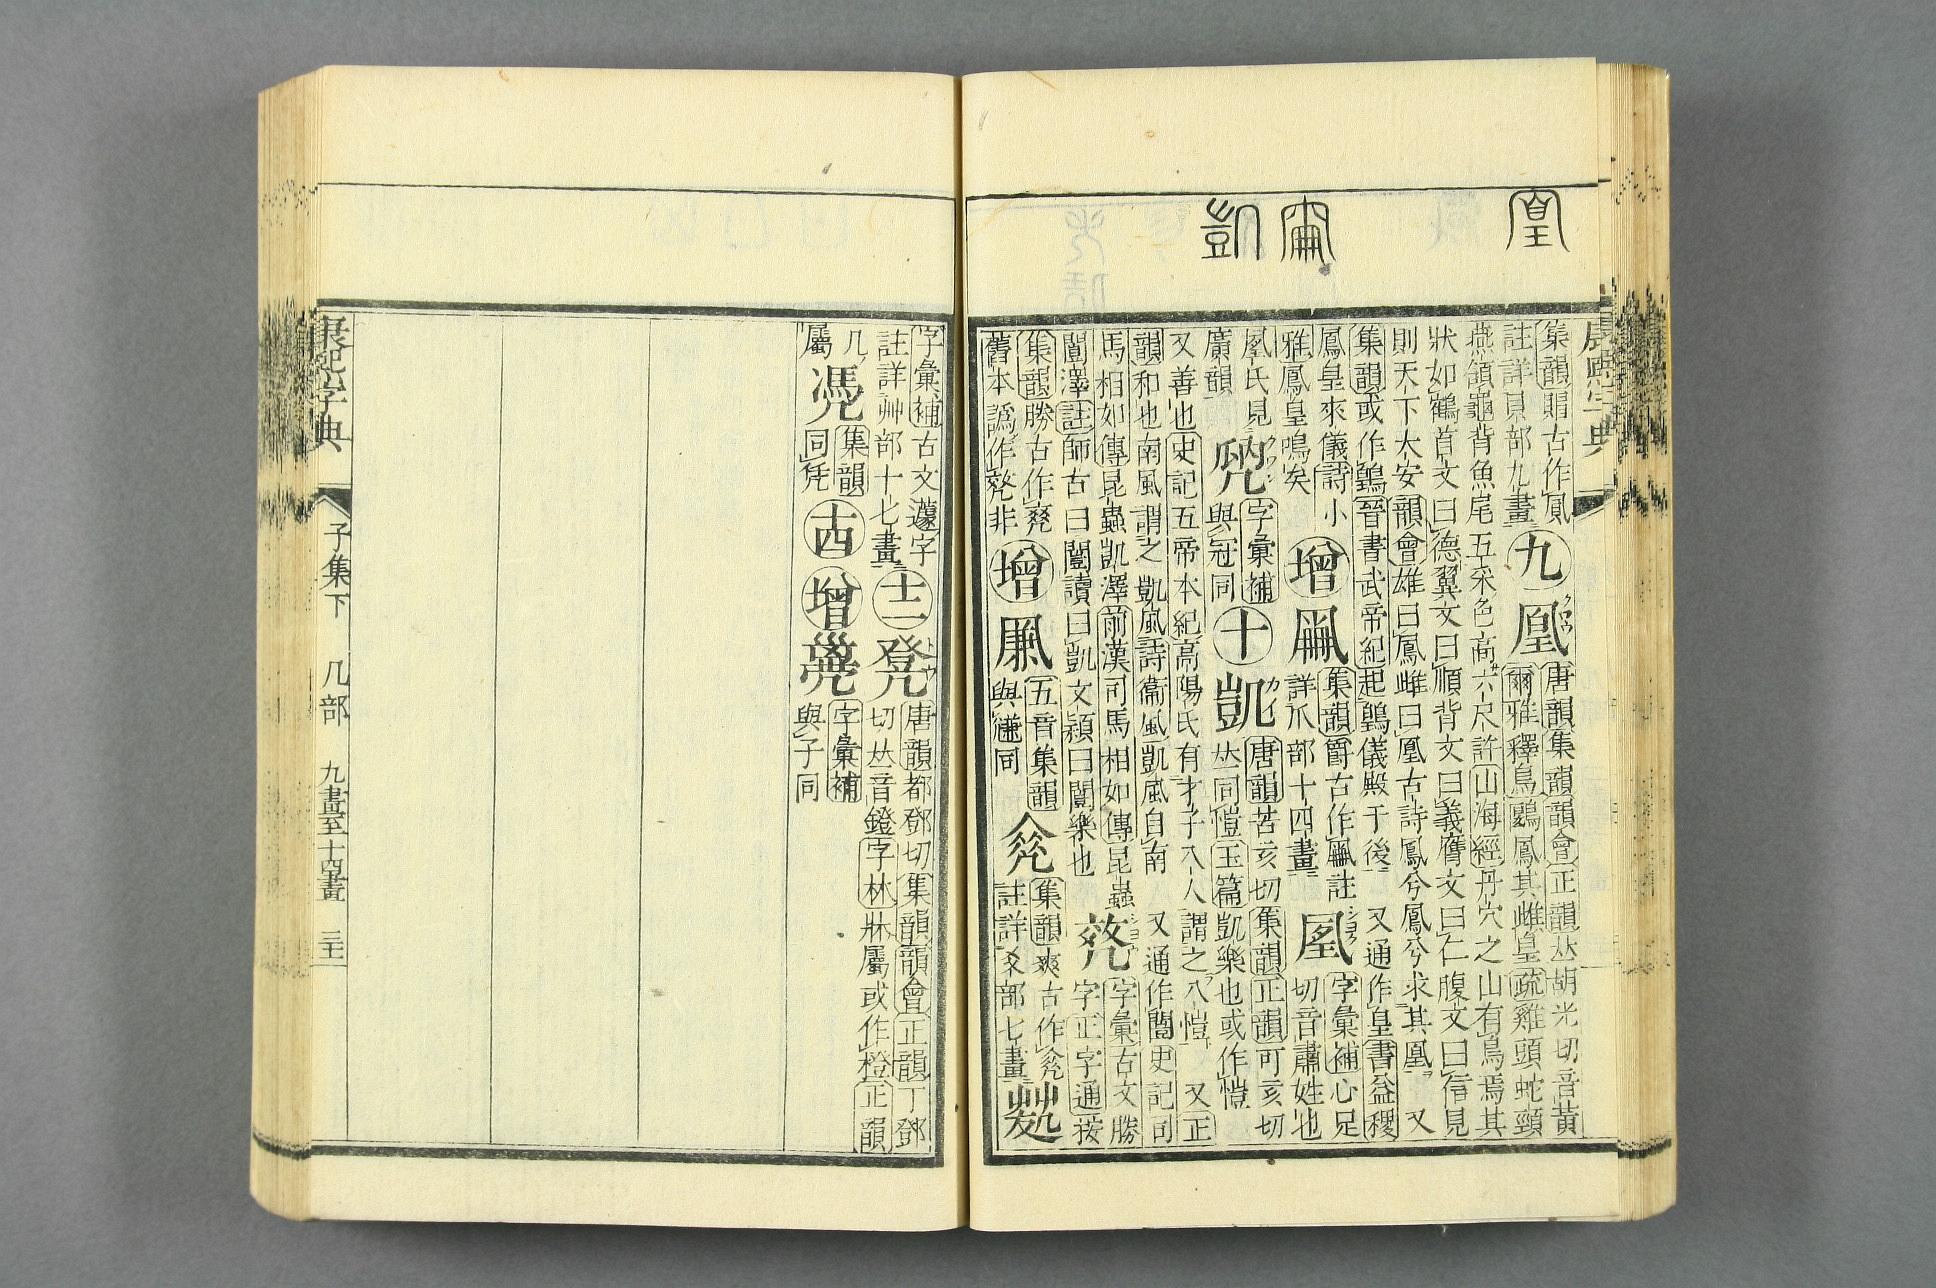 凰
凱
康熙字典
集韻賵古作
註詳貝部九畫
九凰
唐韻集韻韻會正韻𠀤胡光切音黃
爾雅釋鳥鶠鳳其雌皇疏雞頭蛇頸
燕頷龜背魚尾五采色高六尺許山海經丹穴之山有鳥焉其
狀如鶴首文曰德翼文曰順背文曰義膺文曰仁腹文曰信見
則天下大安韻會雄曰鳳雌曰凰古詩鳳兮鳳兮求其凰 又
集韻或作鷬晉書武帝紀起鷬儀殿于後 又通作皇書益稷
鳳皇來儀詩小
雅鳳皇鳴矣
增
集韻爵古作註
詳爪部十四畫
字彙補心足
切音肅姓也
凰氏見
廣韻
字彙補
與冠同
十凱
唐韻苦亥切集韻正韻可亥切
𠀤同愷玉篇凱樂也或作愷
又善也史記五帝本紀高陽氏有才子八人謂之八愷 又正
韻和也南風謂之凱風詩衞風凱風自南 又通作闓史記司
馬相如傳昆蟲凱澤前漢司馬相如傳昆蟲
闓澤註師古曰闓讀曰凱文穎曰闓樂也
字彙古文勝
字正字通按
集韻勝古作
舊本譌作非
增
五音集韻
與縑同
集韻爽古作
註詳爻部七畫
字彙補古文蘧字
註詳艸部十七畫
十二凳
唐韻都鄧切集韻韻會正韻丁鄧
切𠀤音鐙字林牀屬或作橙正韻
几
屬
凴
集韻
同凭
十四
增
字彙補
與子同
康熙字典
子集下 几部 九畫至十四畫